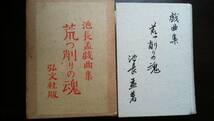 池長孟戯曲集
荒つ削りの魂
弘文社版
戯曲集
荒つ削りの魂
池長孟著